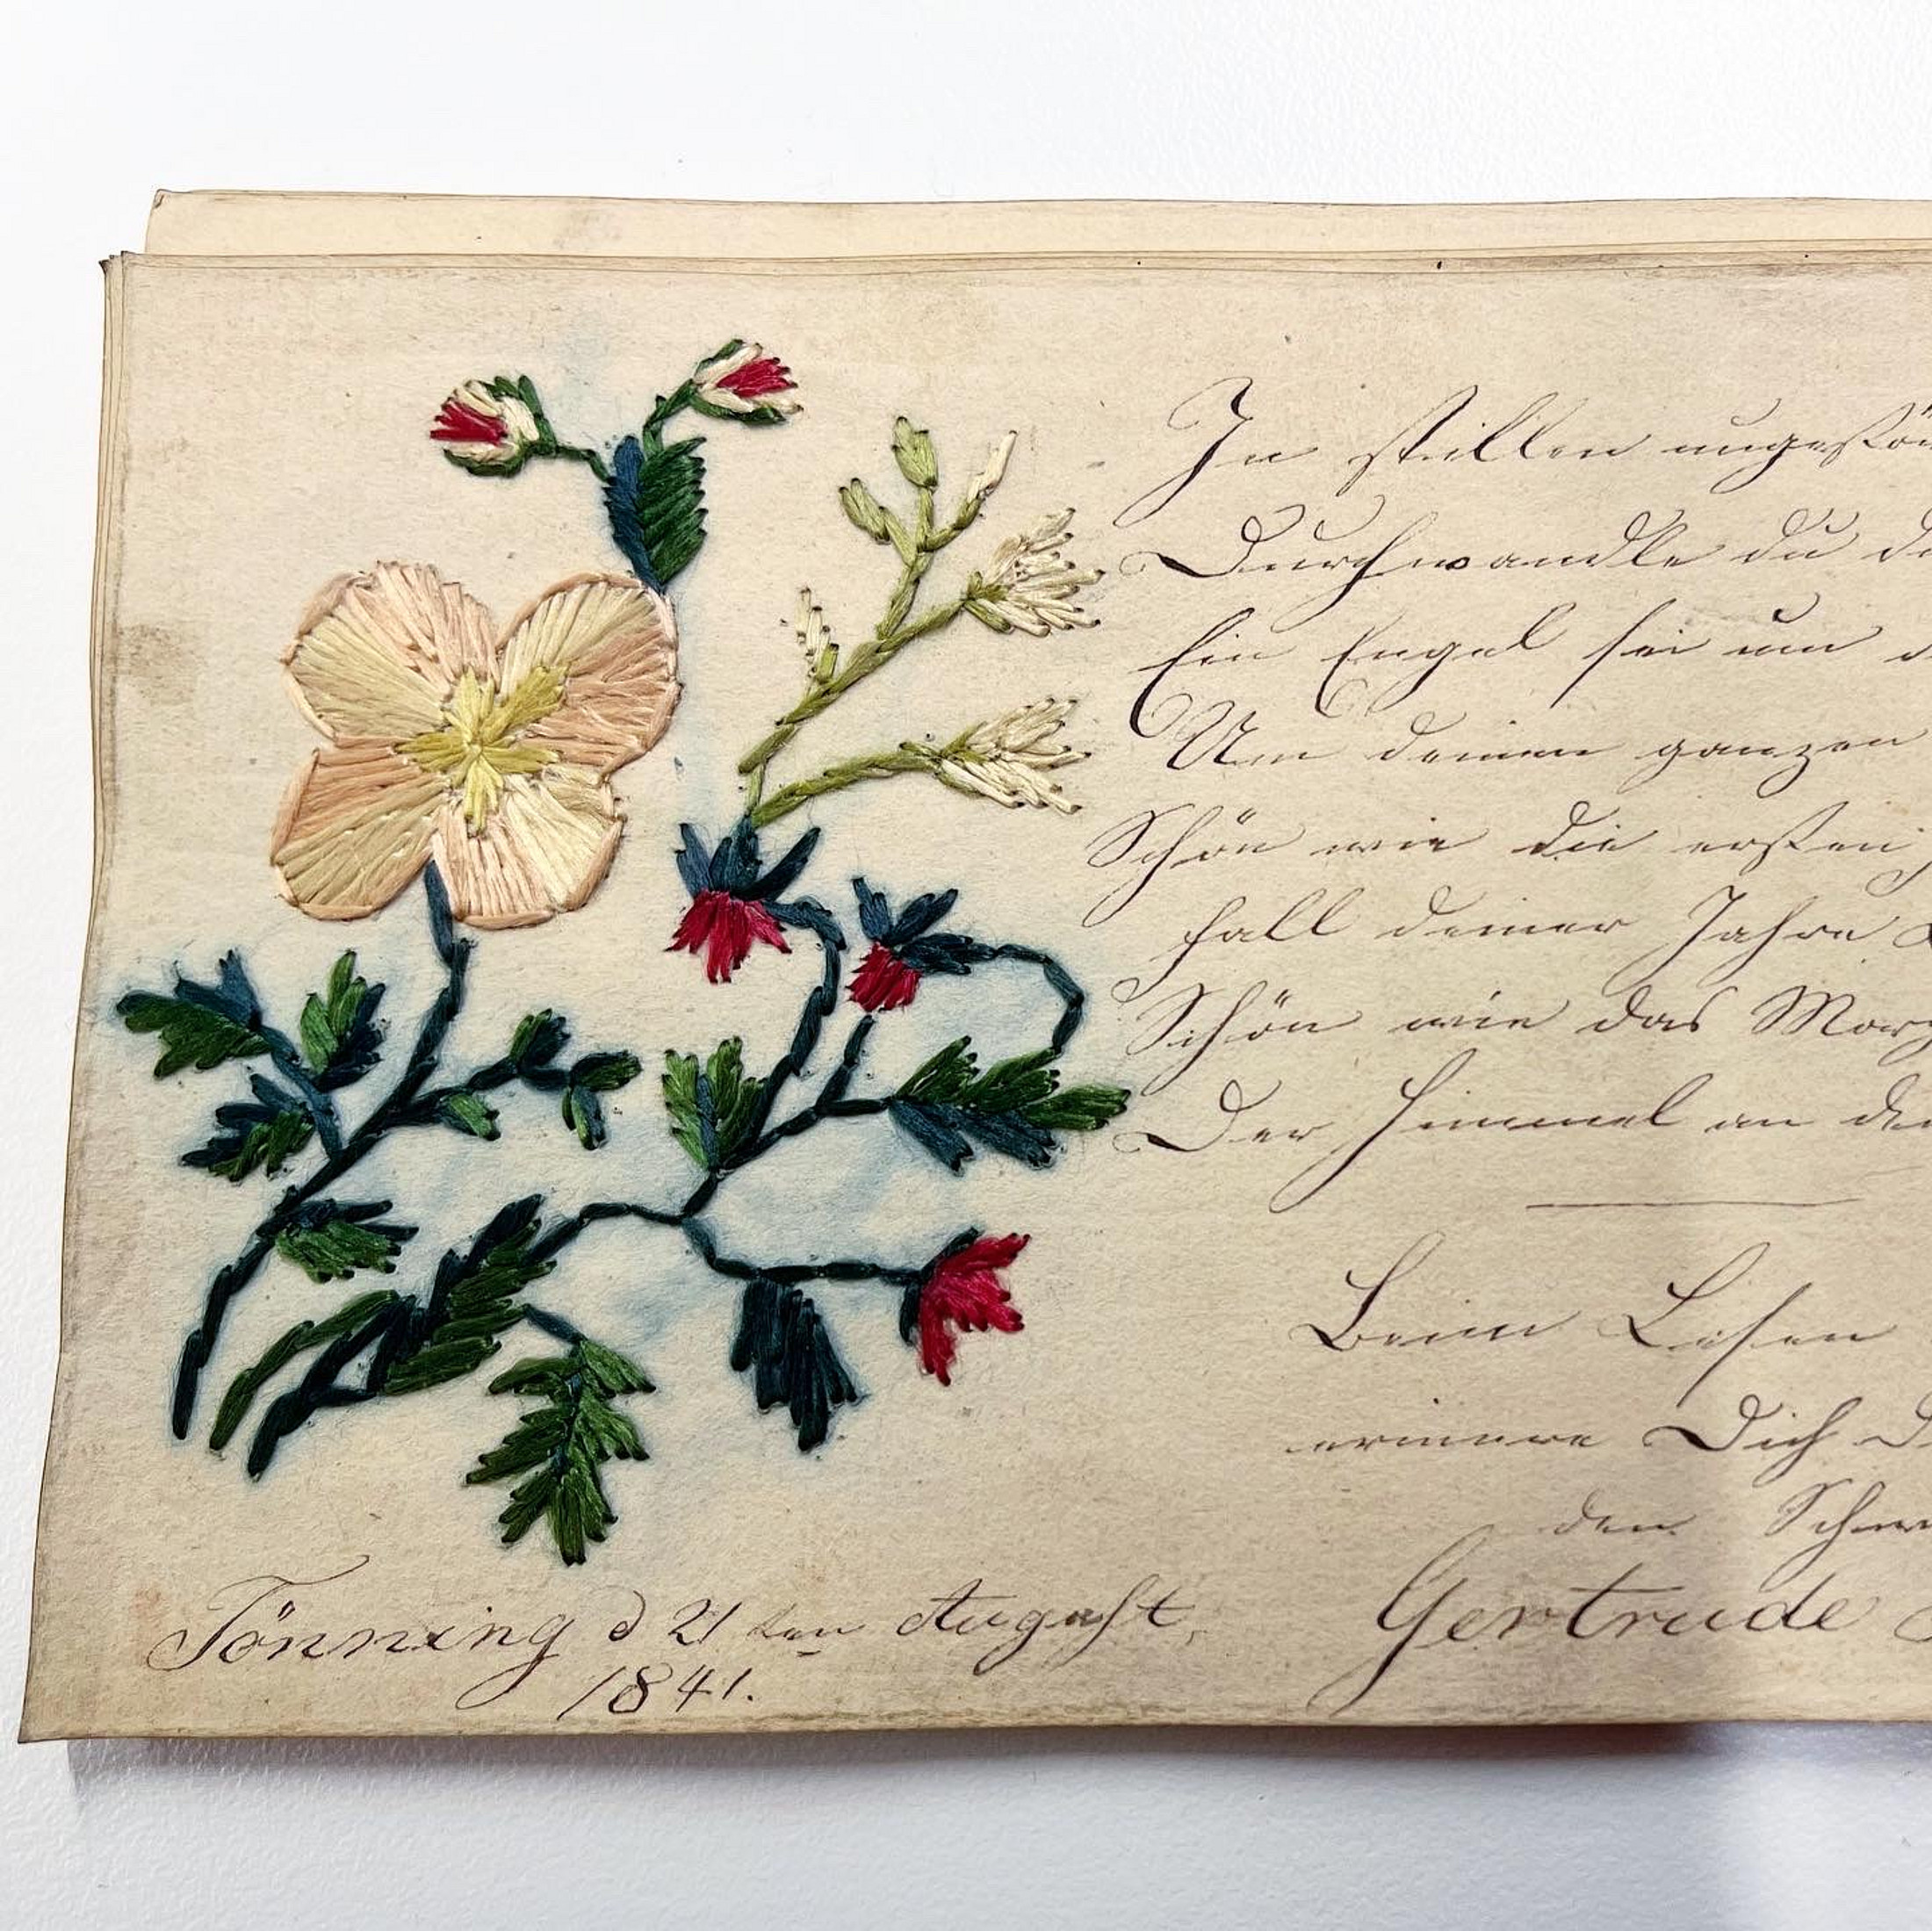 In stillen ungestö
Durchwandle du d
Ein Engel sei um d
Um deinen ganzen
Schön wie die ersten
fall deiner Jahre
Schön wie das Morg
Der Himmel an de
Beim Lesen
erinnere Dich
den Schw
Gertrude
Tönning d 21 ten August,
1841.